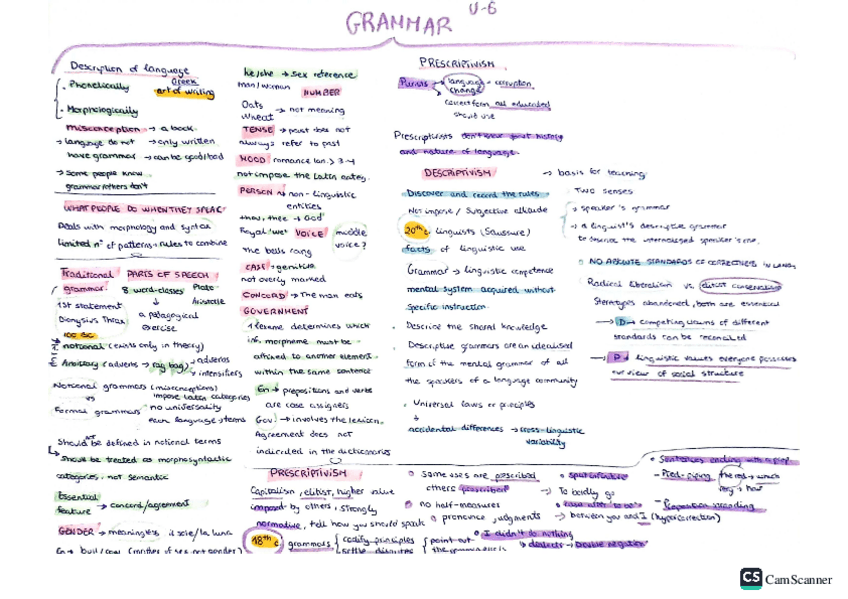 GRAMMAR U-6
Description of language
- Phonetically
- Morphologically
Greek
art of writing
misconception → a book
→ language do not → only written
have grammar → can be good/bad
→ Some people know
grammar others don't
WHAT PEOPLE DO WHEN THEY SPEAK
Deals with morphology and syntax
limited nº of patterns + rules to combine
Traditional PARTS OF SPEECH
grammar 8 word-classes Plato
Aristotle
1st statement
Dionysius Thrax
a pedagogical
exercise
100 BC
notional (exists only in theory)
Ancillary (adverbs → rag bag)
→ adverbs
→ intensifiers
Notional grammars (misconceptions)
impose Latin categories
vs
no universality
Formal grammars
each language → terms
Should not be defined in notional terms
Should be treated as morphosyntactic
categories, not semantic
Essential
feature → concord/agreement
GENDER → meaningless, il sole/la luna
En → bull/cow (matter of sex not gender)
he/she → sex reference
man/woman
NUMBER
Oats
Wheat → not meaning
TENSE → past does not
always refer to past
MOOD romance lan. > 3-4
not impose the Latin categ.
PERSON → non-linguistic
entities
thou, thee → God
Royal/we
VOICE middle
voice?
the bells rang
CASE → genitive
not overly marked
CONCORD → The man eats
GOVERNMENT
1 lexeme determines which
inf. morpheme must be
affixed to another element
within the same sentence
En → prepositions and verbs
are case assigners
Gov → involves the lexicon
Agreement does not
indicated in the dictionaries
PRESCRIPTIVISM
Capitalism, elitist, higher value
imposed by others, strongly
normative, tell how you should speak
18th c grammars
codify principles
settle disputes
point out
PRESCRIPTIVISM
Purists
language change → corruption
correct form not educated
should use
Prescriptivists don't know past history
and nature of language.
DESCRIPTIVISM → basis for teaching
Discover and record the rules
Not impose / Subjective attitude
20th c. linguists (Saussure)
facts of linguistic use
Grammar → linguistic competence
mental system acquired without
specific instruction.
Describe the shared knowledge
Descriptive grammars are an idealised
form of the mental grammar of all
the speakers of a language community
Universal laws or principles
accidental differences → cross-linguistic
variability
TWO SENSES
→ speaker's grammar
→ a linguist's descriptive grammar
to describe the internalised speaker's one.
NO ABSOLUTE STANDARDS OF CORRECTNESS IN LANG.
Radical liberalism vs. elitist conservatism
Stereotypes abandoned, both are essential
→ D → competing claims of different
standards can be reconciled
→ P → linguistic values everyone possesses
our view of social structure
some uses are prescribed
others proscribed
no half-measures
pronounce judgments
I didn't do nothing
→ dialects → Double negation
split infinitive
→ To boldly go
→ between you and I (hypercorrection)
Sentences ending with a prep.
Pied-piping
CS CamScanner